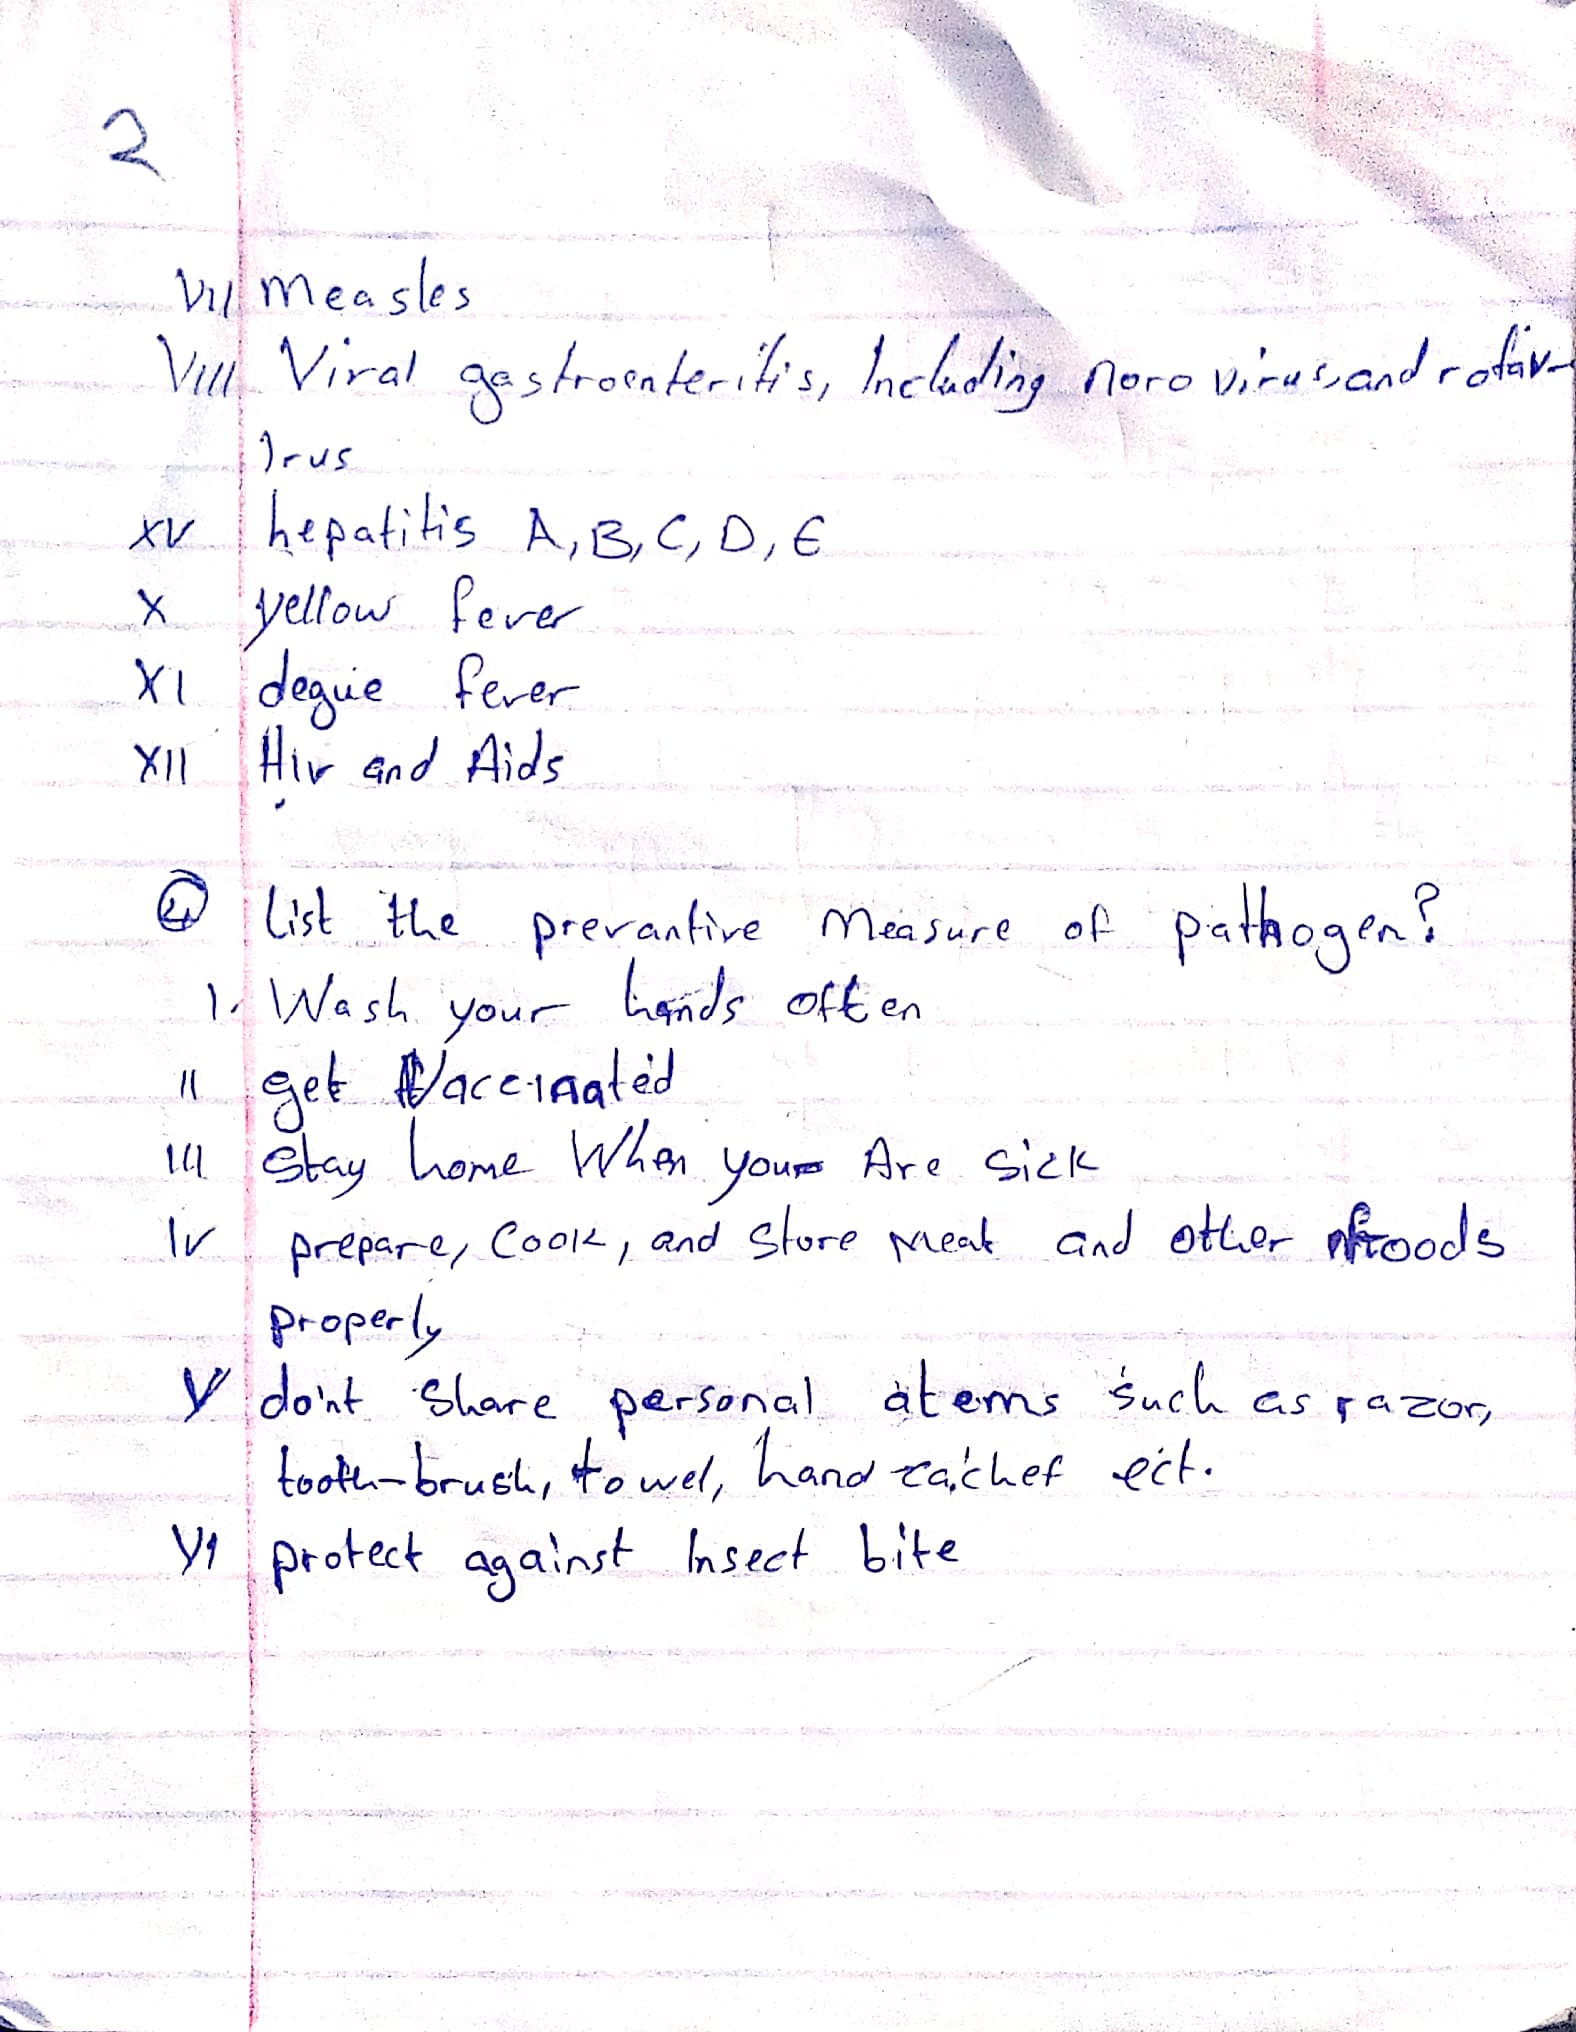 2
VII Measles
VIII Viral gastroenteritis, Including noro virus, and rotav-
irus
XV hepatitis A, B, C, D, E
X yellow fever
XI degue fever
XII Hiv and Aids
④ List the prevantive Measure of pathogen?
I. Wash your hands often
II get Vaccinated
III Stay home When you Are sick
IV prepare, Cook, and Store meat and other foods
properly
V do'nt Share personal atems such as razor,
tooth-brush, towel, hand cachef ect.
VI protect against Insect bite